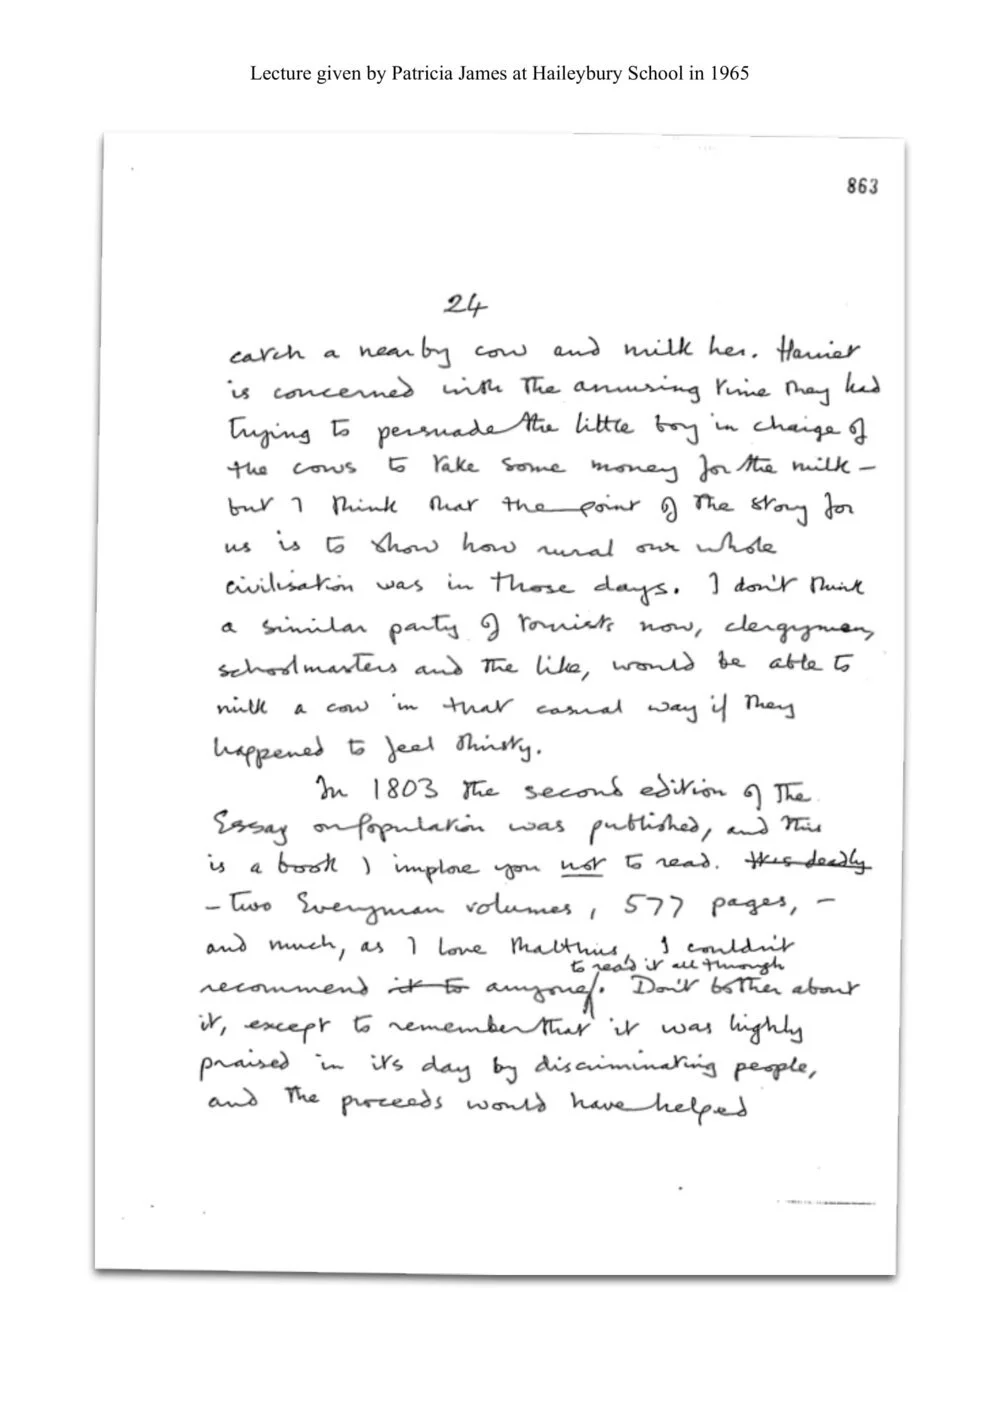 Lecture given by Patricia James at Haileybury School in 1965
863
24
catch a nearby cow and milk her. Harriet
is concerned with the amusing time they had
trying to persuade the little boy in charge of
the cows to take some money for the milk –
but I think that the point of the story for
us is to show how rural our whole
civilisation was in those days. I don't think
a similar party of tourists now, clergymen,
schoolmasters and the like, would be able to
milk a cow in that casual way if they
happened to feel thirsty.
In 1803 the second edition of the
Essay on Population was published, and this
is a book I implore you not to read. It is deadly
– two Everyman volumes, 577 pages, –
and much, as I love Malthus, I couldn't
to read it all through
recommend it to anyone. Don't bother about
it, except to remember that it was highly
praised in its day by discriminating people,
and the proceeds would have helped